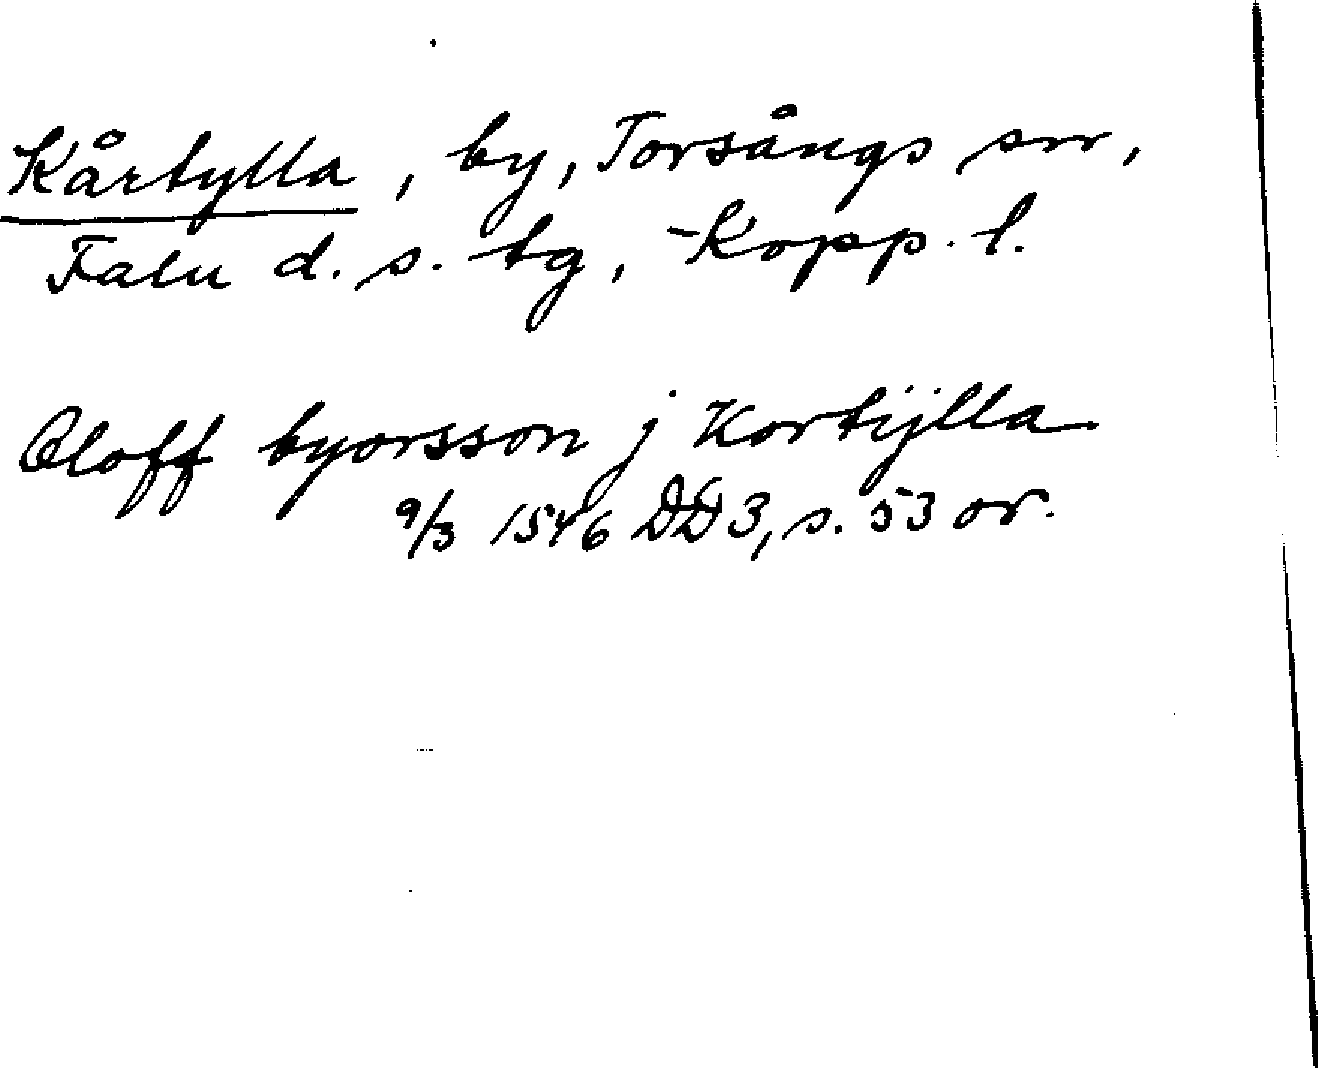 Kårtylla, by, Torsångs sn,
Falu d. s. tg, Kopp. l.
Oloff byorsson j Kortijlla
9/3 1546 DD 3, s. 53 or.